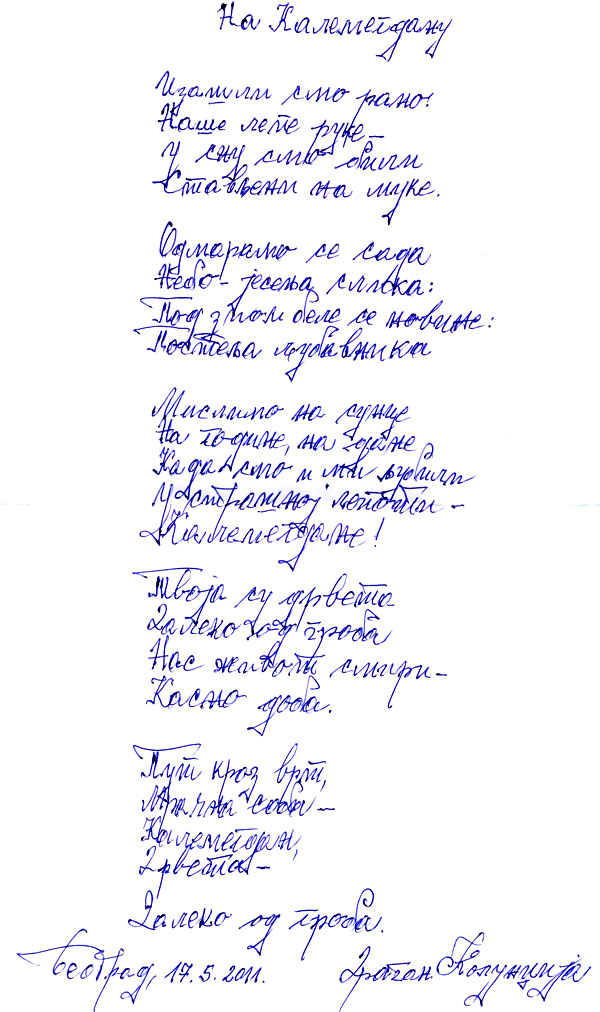 На Калемегдану
Изашли смо рано!
Наше лепе руке –
У сну смо били
Стављени на муке.
Одмарамо се сада
Небо – јесења слика:
Под њом беле се новине:
Постеља љубавника
Мислимо на сунце
На године, на дане
Када смо и ми љубили
У страшној лепоти –
Калемегдане!
Твоја су дрвета
Далеко од гроба
Нас живот смири –
Касно доба.
Пут кроз врт,
Мрачна соба –
Калемегдан,
Дрвета –
Далеко од гроба.
Београд, 17. 5. 2011. Драган Колунџија